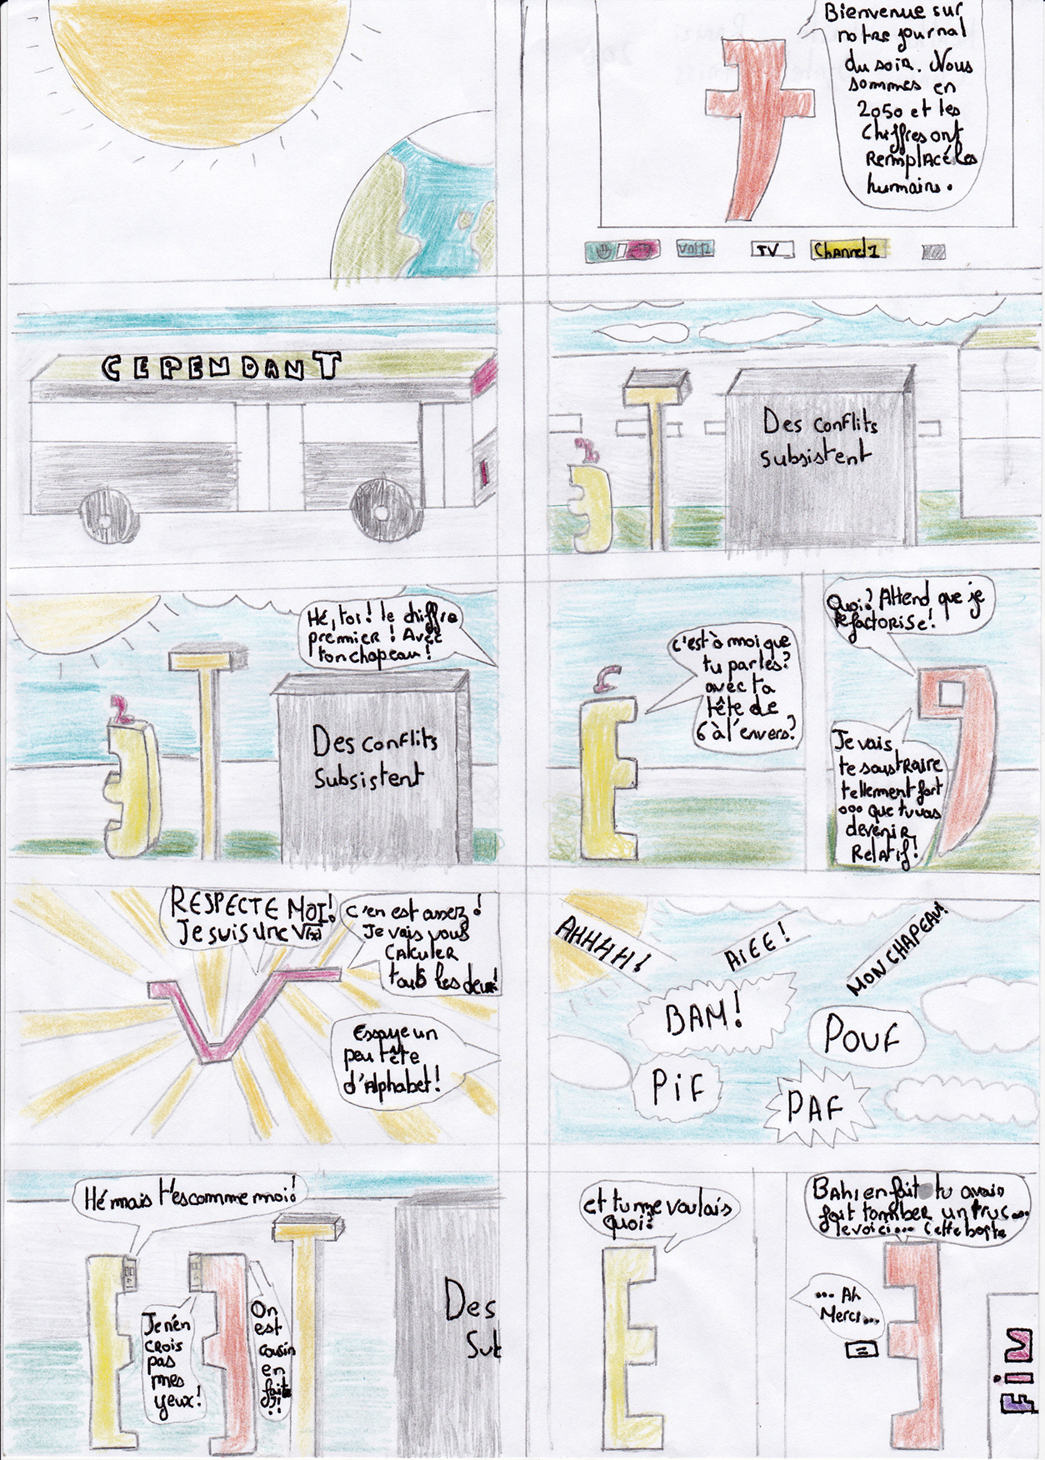 Bienvenue sur
notre journal
du soir. Nous
sommes en
2050 et les
chiffres ont
Remplacé les
humains.
VOL12
TV
Channel 1
CEPENDANT
Des conflits
subsistent
Hé, toi! le chiffre
premier! Avec
ton chapeau!
Des conflits
Subsistent
c'est à moi que
tu parles?
avec ta
tête de
6 à l'envers?
Quoi? Attend que je
te factorise!
Je vais
te soustraire
tellement fort
... que tu vas
devenir
Relatif!
RESPECTE MOI!
Je suis une √
c'en est assez!
Je vais vous
CALCULER
tous les deux!
Essaye un
peu tête
d'Alphabet!
AHHHH!
AIEE!
MON CHAPEAU!
BAM!
POUF
PIF
PAF
Hé mais t'es comme moi!
Je n'en
crois
pas
mes
yeux!
On
est
cousin
en
fait
Des
Sub
et tu me voulais
quoi?
Bah en fait tu avais
fait tomber un truc...
le voici... Cette boîte
... Ah
Merci...
FIN